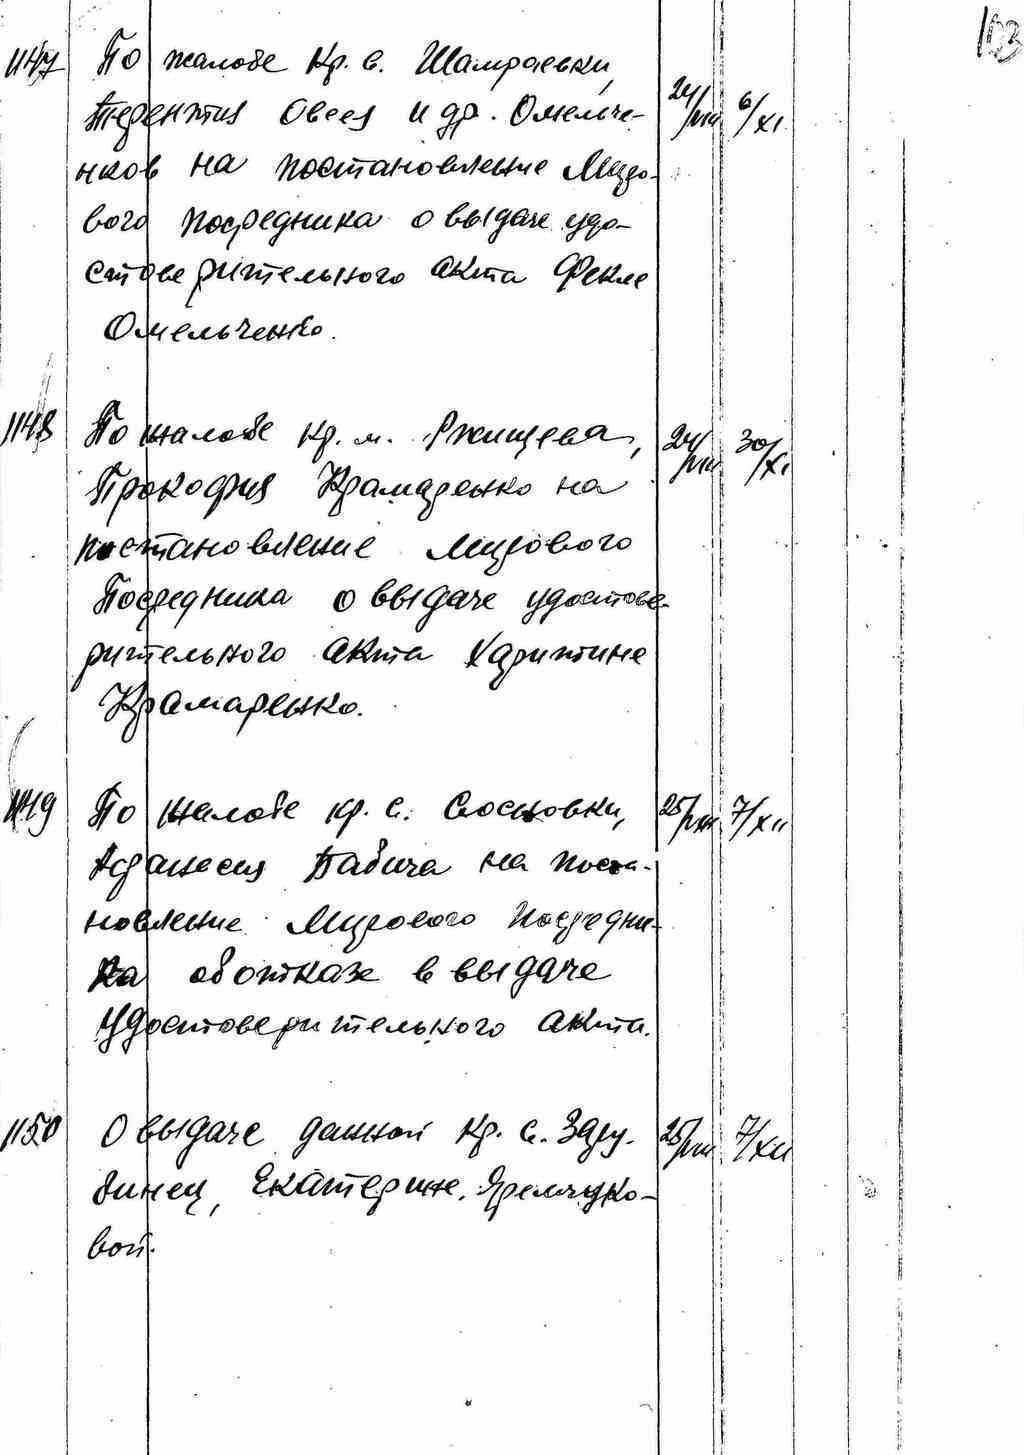 103
1147 По жалобе Кр. с. Шамраевки, 24/VIII 6/XI.
Терентия Овсея и др. Омельче-
нков на постановление Миро-
вого посредника о выдаче удо-
стоверительного акта Фекле
Омельченко.
1148 По жалобе кр. м. Ржищева, 24/VIII 30/XI
Прокофия Крамаренко на
постановление Мирового
Посредника о выдаче удостове-
рительного акта Харитине
Крамаренко.
1149 По жалобе кр. с. Сосновки, 25/VIII 7/XII
Афанасия Бабича на поста-
новление Мирового посредни-
ка об отказе в выдаче
удостоверительного акта.
1150 О выдаче данной Кр. с. Зару- 25/VIII 7/XII
бинец, Екатерине Яремчуко-
вой.